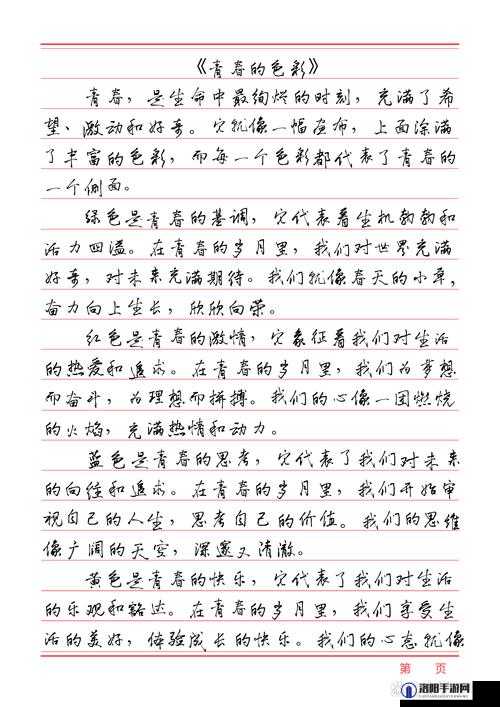 《青春的色彩》
青春，是生命中最绚烂的时刻，充满了希
望、激动和好奇。它就像一幅画布，上面涂满
了丰富的色彩，而每一个色彩都代表了青春的
一个侧面。
绿色是青春的基调，它代表着生机勃勃和
活力四溢。在青春的岁月里，我们对世界充满
好奇，对未来充满期待。我们就像春天的小草，
奋力向上生长，欣欣向荣。
红色是青春的激情，它象征着我们对生活
的热爱和追求。在青春的岁月里，我们为梦想
而奋斗，为理想而拼搏。我们的心像一团燃烧
的火焰，充满热情和动力。
蓝色是青春的思考，它代表了我们对未来
的向往和追求。在青春的岁月里，我们开始审
视自己的人生，思考自己的价值。我们的思维
像广阔的天空，深邃又清澈。
黄色是青春的快乐，它代表了我们对生活
的乐观和豁达。在青春的岁月里，我们享受生
活的美好，体验成长的快乐。我们的心态就像
第 页
洛阳手游网